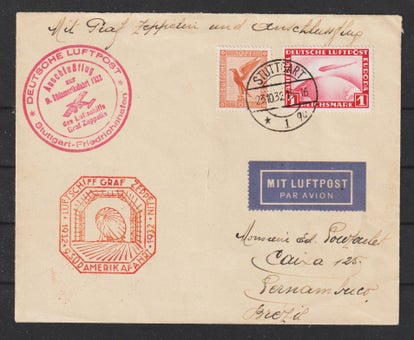 Mit Graf Zeppelin und Anschlussflug
DEUTSCHE LUFTPOST
Anschlußflug
zur
9. Südamerikafahrt 1932
des Luftschiffs
Graf Zeppelin
Stuttgart-Friedrichshafen
DEUTSCHE LUFTPOST
EUROPA
1 REICHSMARK 1
STUTTGART
1
MIT LUFTPOST
PAR AVION
LUFTSCHIFF GRAF ZEPPELIN
1932
1932
SÜDAMERIKAFAHRT
Monsieur Ed.
Caixa 125
Pernambuco
Brezil